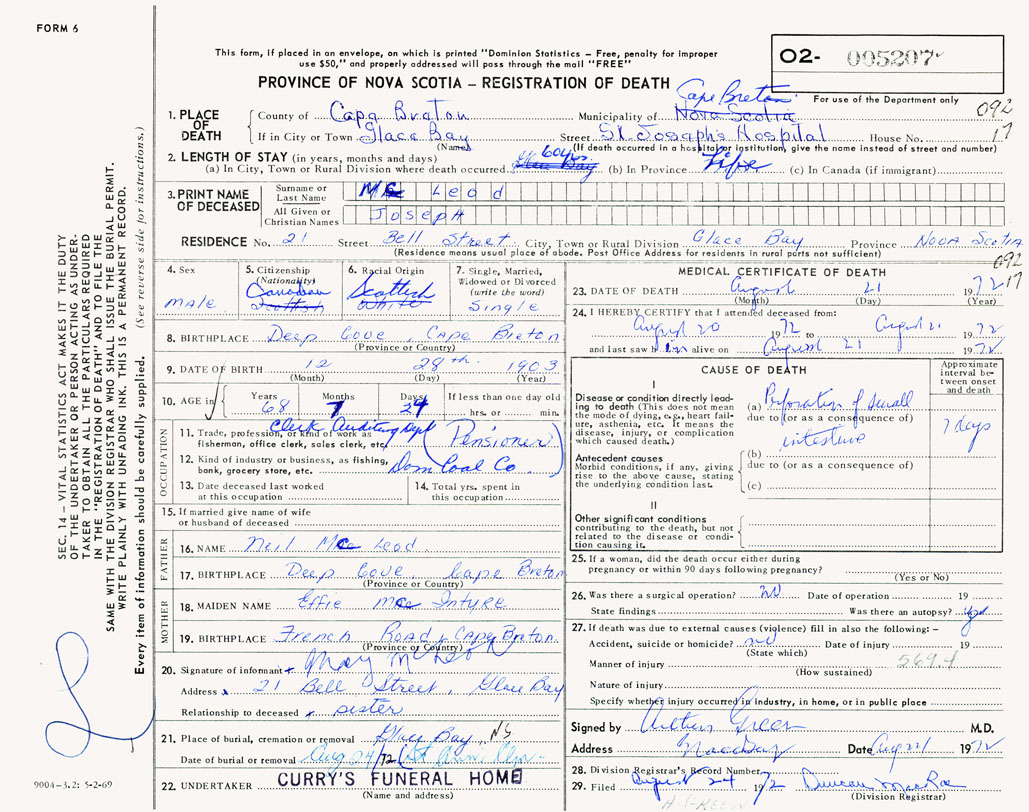 FORM 6
O2- 005207
This form, if placed in an envelope, on which is printed "Dominion Statistics – Free, penalty for improper
use $50," and properly addressed will pass through the mail "FREE"
PROVINCE OF NOVA SCOTIA – REGISTRATION OF DEATH
For use of the Department only
092
17
1. PLACE OF DEATH
County of Cape Breton Municipality of Nova Scotia Cape Breton
If in City or Town Glace Bay Street St. Joseph's Hospital House No.
(Name) (If death occurred in a hospital or institution, give the name instead of street and number)
2. LENGTH OF STAY (in years, months and days)
(a) In City, Town or Rural Division where death occurred Glace Bay 60 yrs (b) In Province Life (c) In Canada (if immigrant)
3. PRINT NAME OF DECEASED
Surname or Last Name Mc Leod
All Given or Christian Names JOSEPH
RESIDENCE No. 21 Street Bell Street City, Town or Rural Division Glace Bay Province Nova Scotia
(Residence means usual place of abode. Post Office Address for residents in rural parts not sufficient)
092
17
4. Sex
male
5. Citizenship (Nationality)
Canadian
Scottish
6. Racial Origin
Scottish
White
7. Single, Married, Widowed or Divorced (write the word)
Single
8. BIRTHPLACE Deep Cove, Cape Breton
(Province or Country)
9. DATE OF BIRTH 12 28th 1903
(Month) (Day) (Year)
10. AGE in
Years 68 Months 7 Days 24 If less than one day old
hrs. or min.
OCCUPATION
11. Trade, profession, or kind of work as fisherman, office clerk, sales clerk, etc. Clerk Auditing Dept (Pensioner)
12. Kind of industry or business, as fishing, bank, grocery store, etc. Dom Coal Co.
13. Date deceased last worked at this occupation
14. Total yrs. spent in this occupation
15. If married give name of wife or husband of deceased
FATHER
16. NAME Neil Mc Leod
17. BIRTHPLACE Deep Cove, Cape Breton
(Province or Country)
MOTHER
18. MAIDEN NAME Effie Mc Intyre
19. BIRTHPLACE French Road, Cape Breton
(Province or Country)
20. Signature of informant Mary McLeod
Address 21 Bell Street, Glace Bay
Relationship to deceased sister
21. Place of burial, cremation or removal Glace Bay, NS
Date of burial or removal Aug 24/72 (St Ann's Cem
22. UNDERTAKER CURRY'S FUNERAL HOME
(Name and address)
MEDICAL CERTIFICATE OF DEATH
23. DATE OF DEATH August 21 1972
(Month) (Day) (Year)
24. I HEREBY CERTIFY that I attended deceased from:
August 20 1972 to August 21 1972
and last saw him alive on August 21 1972
CAUSE OF DEATH
Approximate interval between onset and death
I
Disease or condition directly leading to death (This does not mean the mode of dying, e.g., heart failure, asthenia, etc. It means the disease, injury, or complication which caused death.)
(a) Perforation of small
due to (or as a consequence of)
intestine
7 days
Antecedent causes
Morbid conditions, if any, giving rise to the above cause, stating the underlying condition last.
(b)
due to (or as a consequence of)
(c)
II
Other significant conditions
contributing to the death, but not related to the disease or condition causing it.
25. If a woman, did the death occur either during pregnancy or within 90 days following pregnancy?
(Yes or No)
26. Was there a surgical operation? No Date of operation 19
State findings Was there an autopsy? yes
27. If death was due to external causes (violence) fill in also the following: –
Accident, suicide or homicide? no Date of injury 19
(State which)
Manner of injury 569.4
(How sustained)
Nature of injury
Specify whether injury occurred in industry, in home, or in public place
Signed by Arthur Green M.D.
Address Glace Bay Date Aug 22/ 1972
28. Division Registrar's Record Number
29. Filed August 24 1972 Duncan MacRae
(Division Registrar)
A. GREEN
SEC. 14 – VITAL STATISTICS ACT MAKES IT THE DUTY
OF THE UNDERTAKER OR PERSON ACTING AS UNDER-
TAKER TO OBTAIN ALL THE PARTICULARS REQUIRED
IN THE "REGISTRATION OF DEATH" AND TO FILE THE
SAME WITH THE DIVISION REGISTRAR WHO SHALL ISSUE THE BURIAL PERMIT.
WRITE PLAINLY WITH UNFADING INK. THIS IS A PERMANENT RECORD.
Every item of information should be carefully supplied. (See reverse side for instructions.)
9004-3.2: 5-2-69